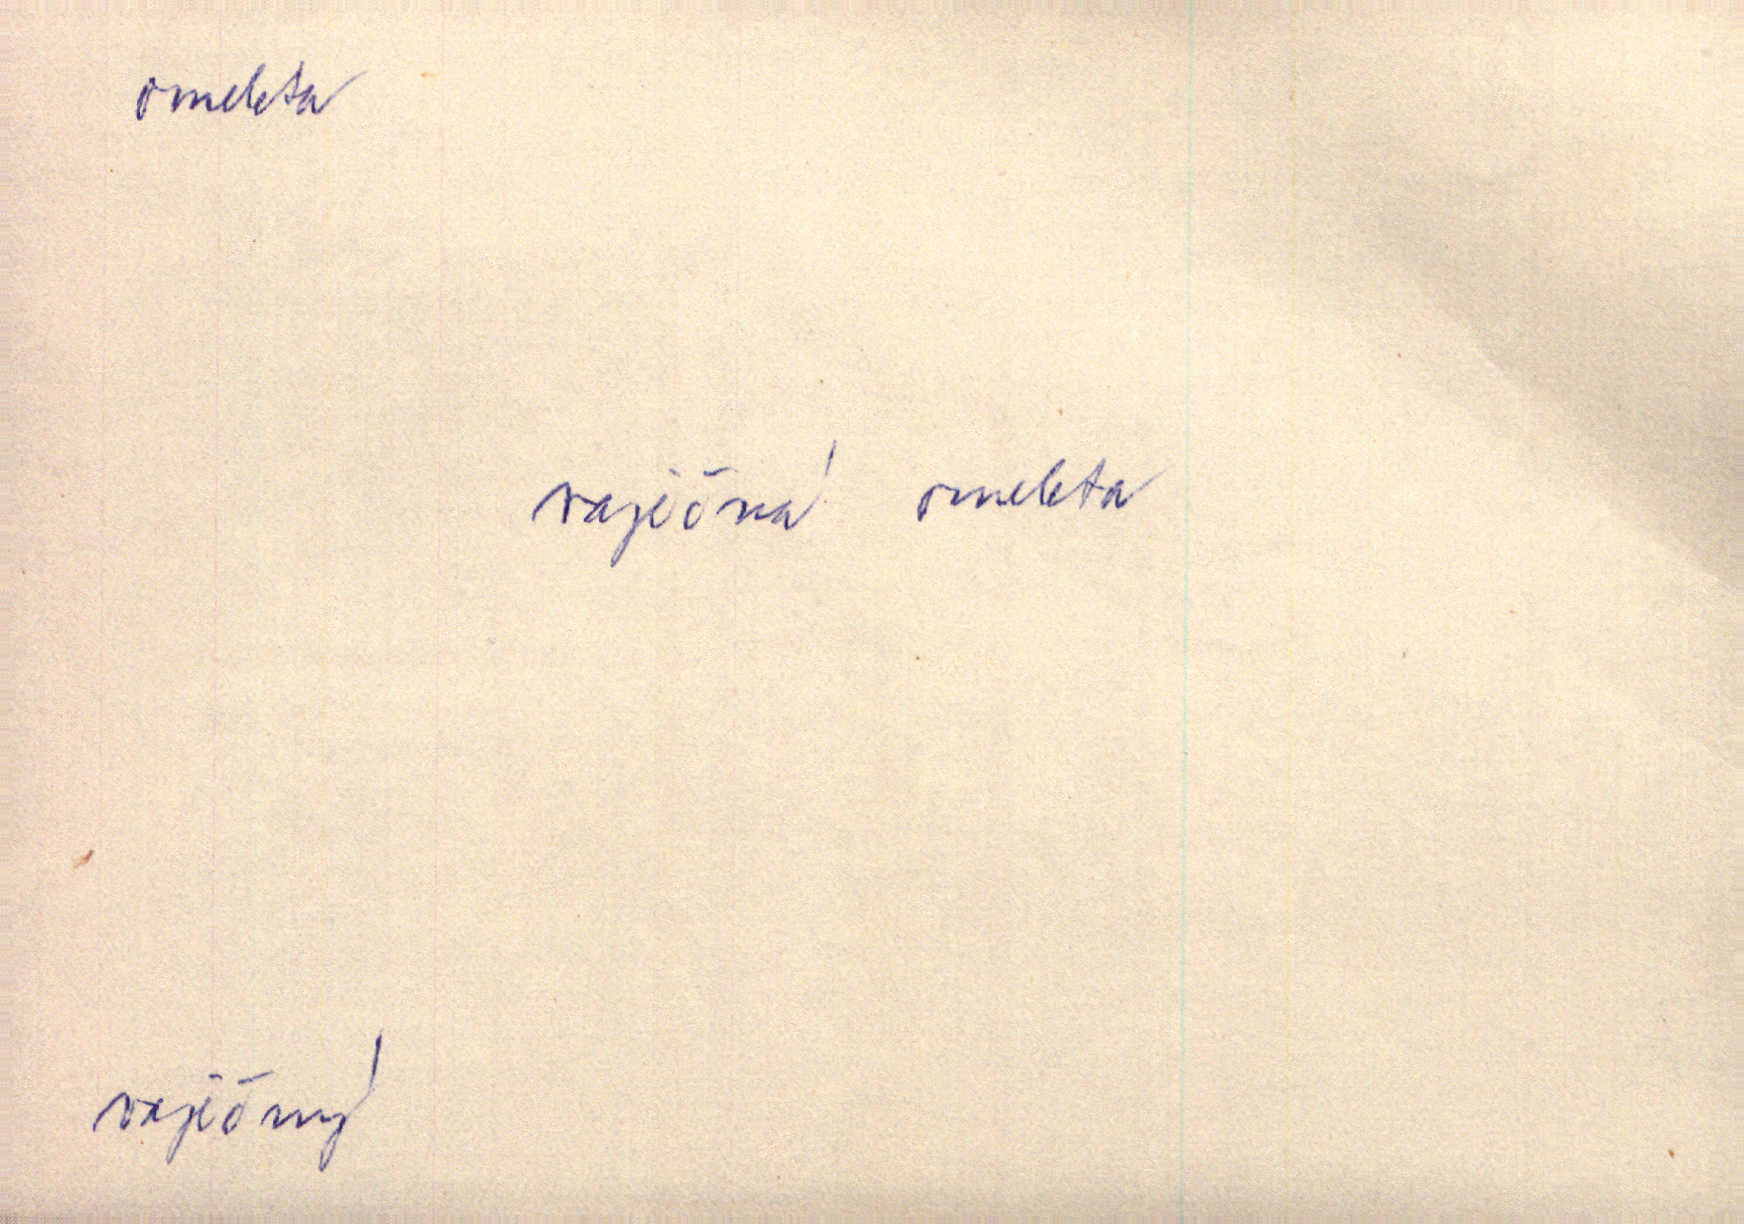 omeleta
vaječná omeleta
vaječný